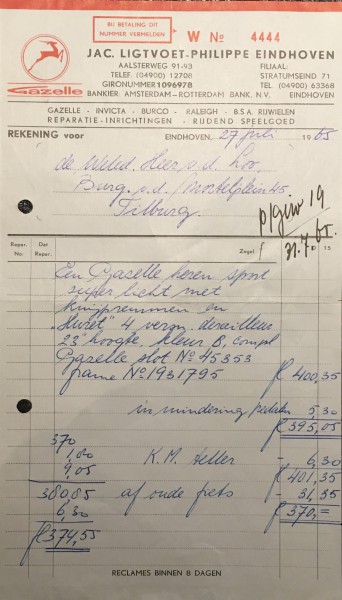 BIJ BETALING DIT
NUMMER VERMELDEN
W No 4444
Gazelle
JAC. LIGTVOET-PHILIPPE EINDHOVEN
AALSTERWEG 91-93
TELEF (04900) 12708
GIRONUMMER 1096978
FILIAAL:
STRATUMSEIND 71
TEL (04900) 63368
BANKIER AMSTERDAM-ROTTERDAM BANK N.V. EINDHOVEN
GAZELLE - INVICTA - BURCO - RALEIGH - B.S.A. RIJWIELEN
REPARATIE-INRICHTINGEN - RIJDEND SPEELGOED
REKENING voor EINDHOVEN, 27 juli 1965
de Heer v.d. Loo.
Burg. v.d. Mortelplein 45
Tilburg.
p/giro 19
31.7.65.
Repar. No: Dat Repar. Zegel f 0 15
Een Gazelle heren sport
super licht met
knijpremmen en
"Huret" 4 versn. derailleur
23" hoogte, kleur B, compl
Gazelle slot No 45353
frame No 1931795 fl 400,35
in mindering pedalen 5,30
fl 395,05
K.M. teller - 6,30
fl 401,35
af oude fiets - 31,35
fl 370,=
370
1,80
9,05
380,85
6,30
fl 374,55
RECLAMES BINNEN 8 DAGEN